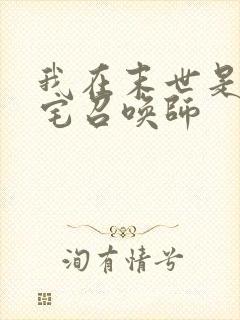 我在末世是
宅召唤师
洵有情兮